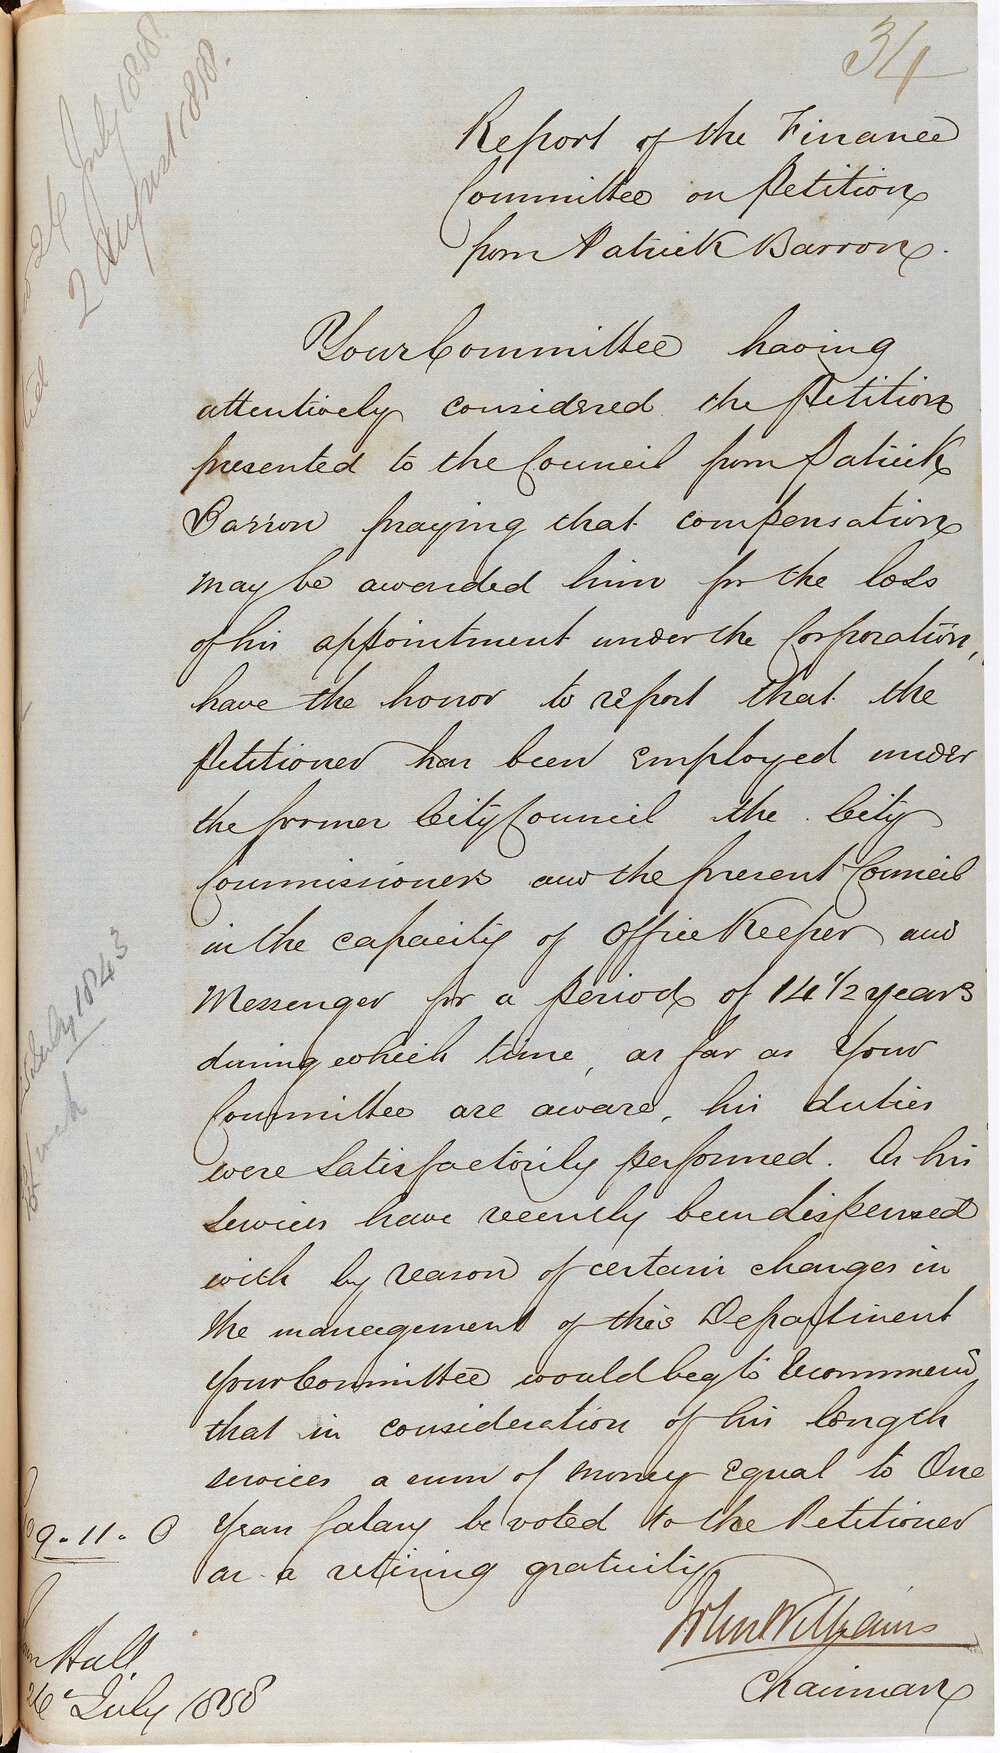 34
26 July 1858.
2 August 1858.
Report of the Finance
Committee on Petition
from Patrick Barron.
Your Committee having
attentively considered the Petition
presented to the Council from Patrick
Barron praying that compensation
may be awarded him for the loss
of his appointment under the Corporation,
have the honor to report that the
Petitioner has been employed under
the former City Council the City
Commissioners and the present Council
in the capacity of Office Keeper and
Messenger for a period of 14 1/2 years
during which time, as far as Your
Committee are aware, his duties
were satisfactorily performed. As his
services have recently been dispensed
with by reason of certain changes in
the management of this Department
Your Committee would beg to recommend
that in consideration of his length
services a sum of money equal to One
Years Salary be voted to the Petitioner
as a retiring gratuity
July 1843
9-11-0
John Williams
Chairman
Hall
26 July 1858